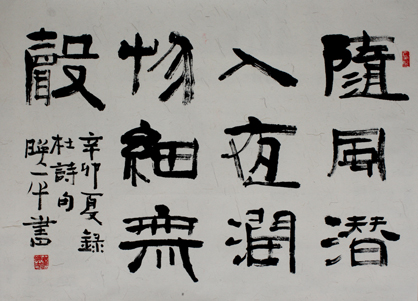 隨風潛
入夜潤
物細無
聲
辛卯夏錄
杜詩句
一牛書